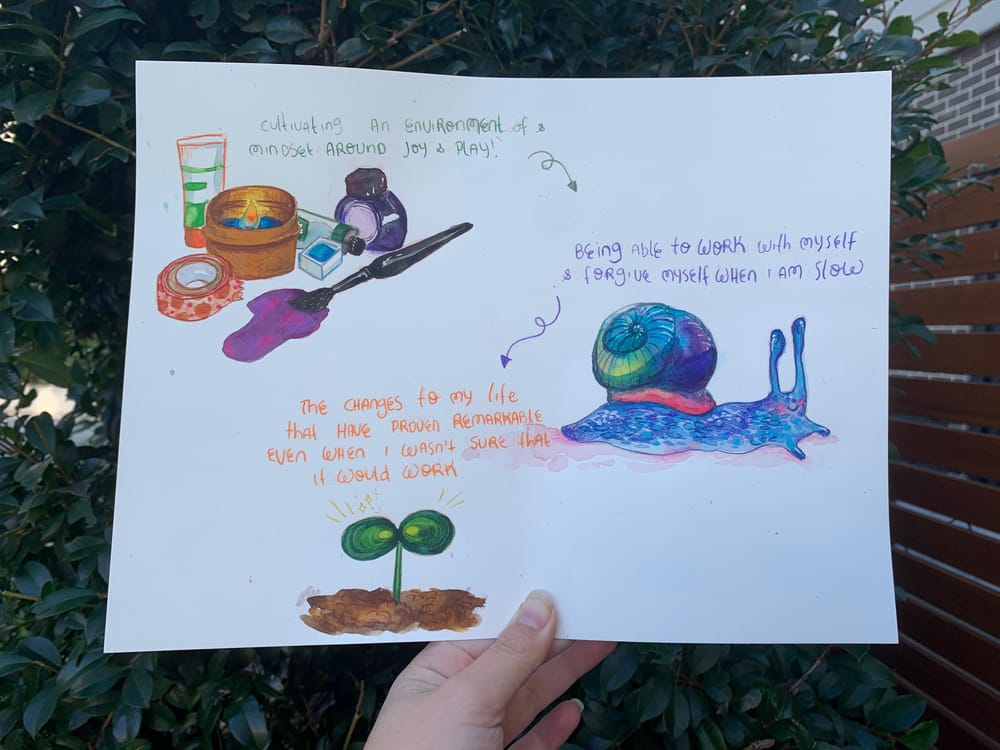 cultivating AN ENVIRONMENT of &
MINDSET AROUND JOY & PLAY!
BEING ABLE to WORK with MYSELF
& FORGIVE MYSELF WHEN I AM SLOW
THE CHANGES to MY life
that HAVE PROVEN REMARKABLE
EVEN WHEN I WASN'T SURE that
it WOULD WORK